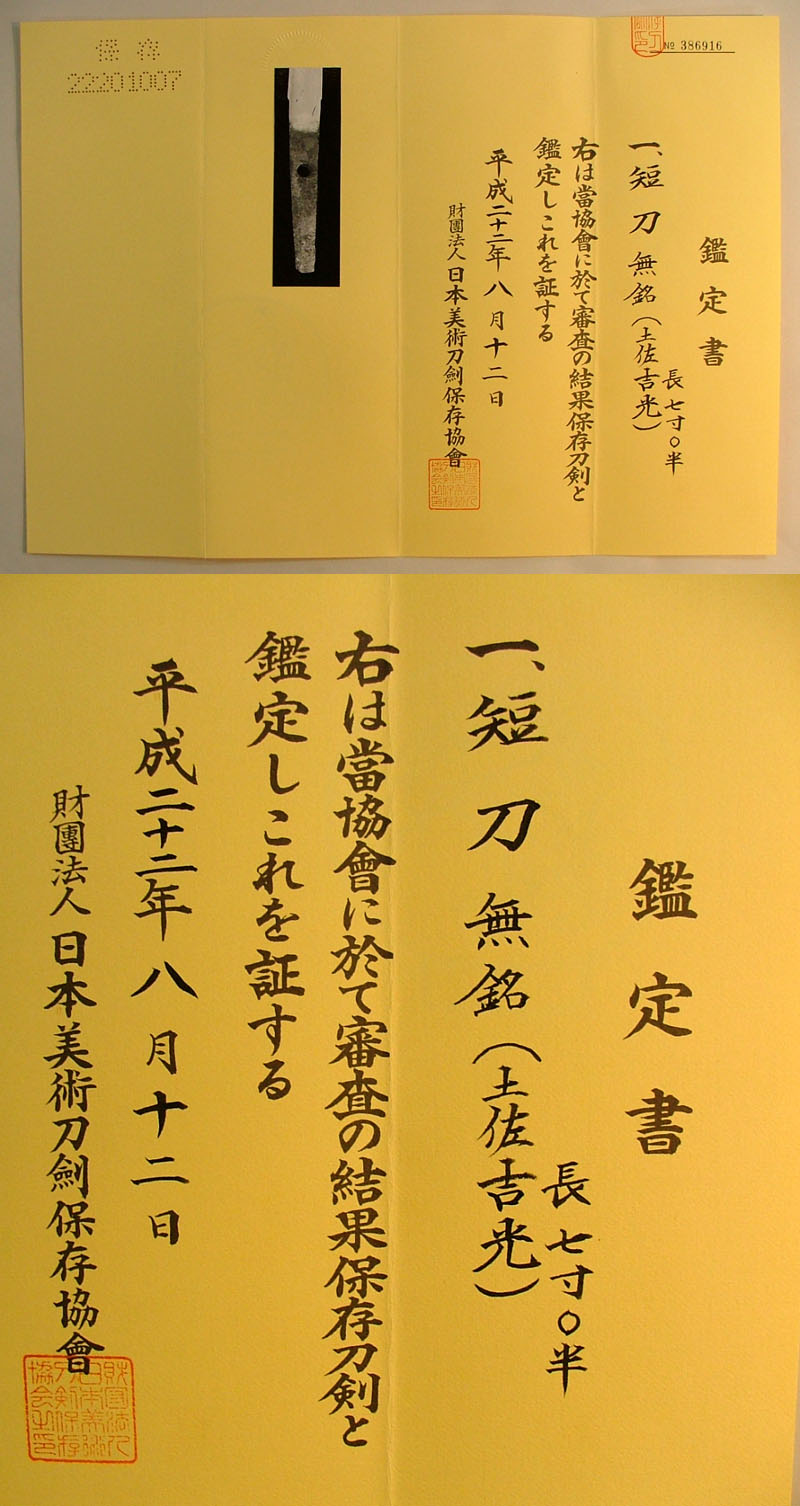 保存
22201007
№ 386916
鑑定書
一、短刀 無銘(土佐吉光)
長七寸〇半
右は當協會に於て審査の結果保存刀剣と
鑑定しこれを証する
平成二十二年八月十二日
財團法人日本美術刀劍保存協會
鑑定書
一、短刀 無銘(土佐吉光)
長七寸〇半
右は當協會に於て審査の結果保存刀剣と
鑑定しこれを証する
平成二十二年八月十二日
財團法人日本美術刀劍保存協會
財團法人
日本美術
刀剣保存
協会之印